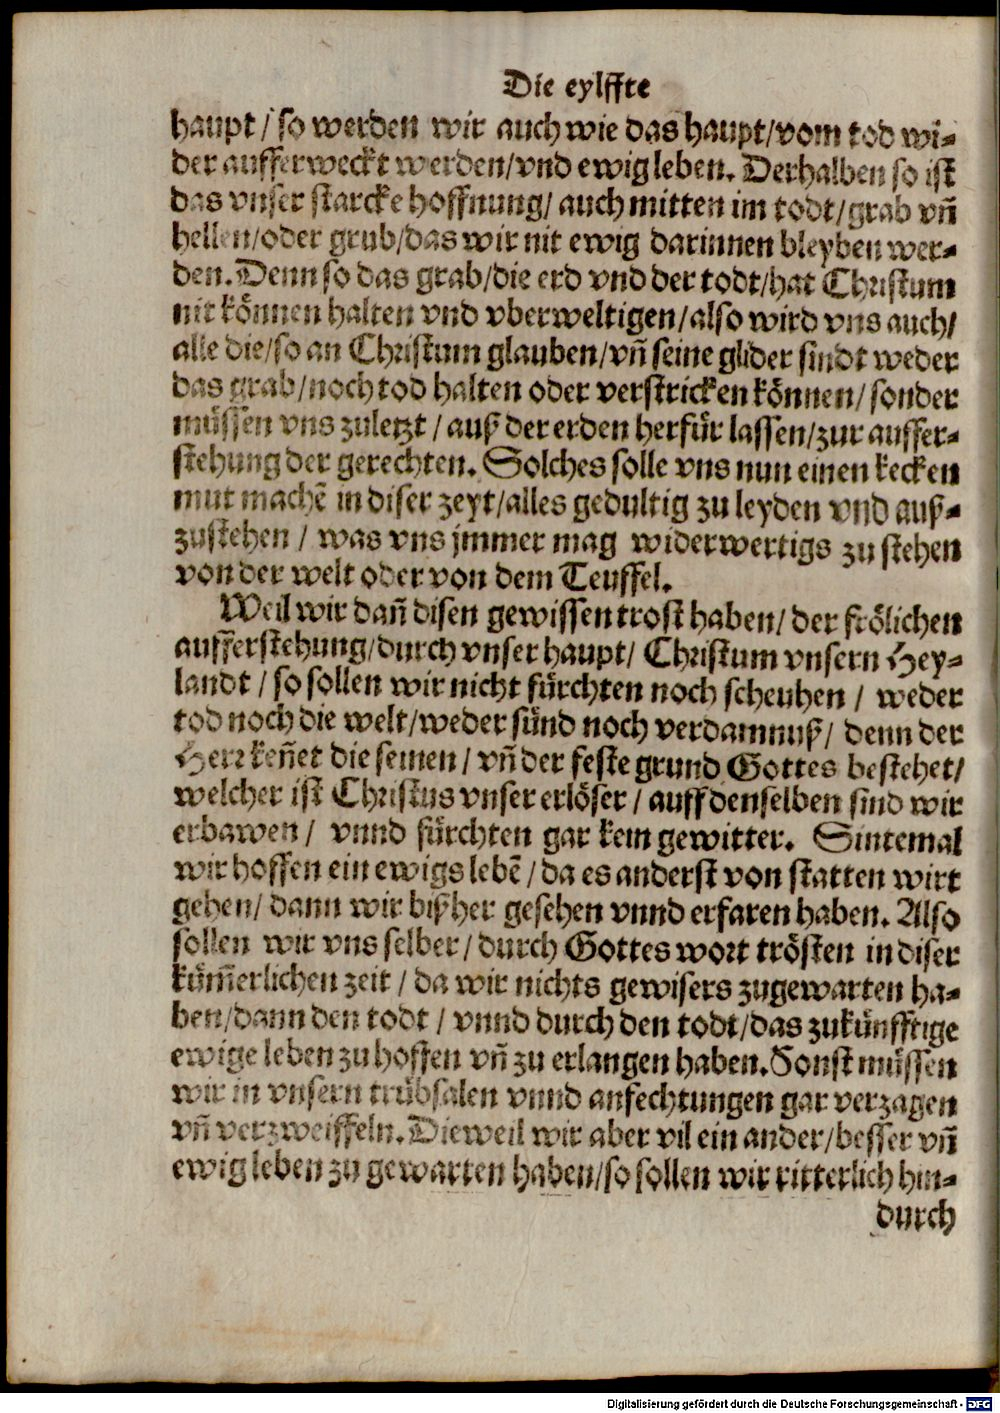 Die eylffte
haupt / so werden wir auch wie das haupt/vom tod wi-
der aufferweckt werden/vnd ewig leben. Derhalben so ist
das vnser starcke hoffnung/ auch mitten im todt/grab vñ
hellen/oder grub/das wir nit ewig darinnen bleyben wer-
den. Denn so das grab/die erd vnd der todt/hat Christum
nit können halten vnd vberweltigen/also wird vns auch/
alle die/so an Christum glauben/vñ seine glider sindt weder
das grab/noch tod halten oder verstricken können/ sonder
müssen vns zuletzt / auß der erden herfür lassen/zur auffer-
stehung der gerechten. Solches solle vns nun einen kecken
mut machẽ in diser zeyt/alles gedultig zu leyden vnd auß-
zustehen / was vns jmmer mag widerwertigs zu stehen
von der welt oder von dem Teuffel.
Weil wir dañ disen gewissen trost haben/ der frölichen
aufferstehung/durch vnser haupt/ Christum vnsern Hey-
landt / so sollen wir nicht fürchten noch scheuhen / weder
tod noch die welt/weder sünd noch verdamnuß/ denn der
Herr keñet die seinen / vñ der feste grund Gottes bestehet/
welcher ist Christus vnser erlöser / auff denselben sind wir
erbawen / vnnd fürchten gar kein gewitter. Sintemal
wir hoffen ein ewigs lebẽ / da es anderst von statten wirt
gehen/ dann wir bißher gesehen vnnd erfaren haben. Also
sollen wir vns selber / durch Gottes wort trösten in diser
küm̃erlichen zeit / da wir nichts gewisers zugewarten ha-
ben/dann den todt / vnnd durch den todt/das zukünfftige
ewige leben zu hoffen vñ zu erlangen haben. Sonst müssen
wir in vnsern trübsalen vnnd anfechtungen gar verzagen
vñ verzweiffeln. Dieweil wir aber vil ein ander/besser vñ
ewig leben zu gewarten haben/so sollen wir ritterlich hin-
durch
Digitalisierung gefördert durch die Deutsche Forschungsgemeinschaft - DFG